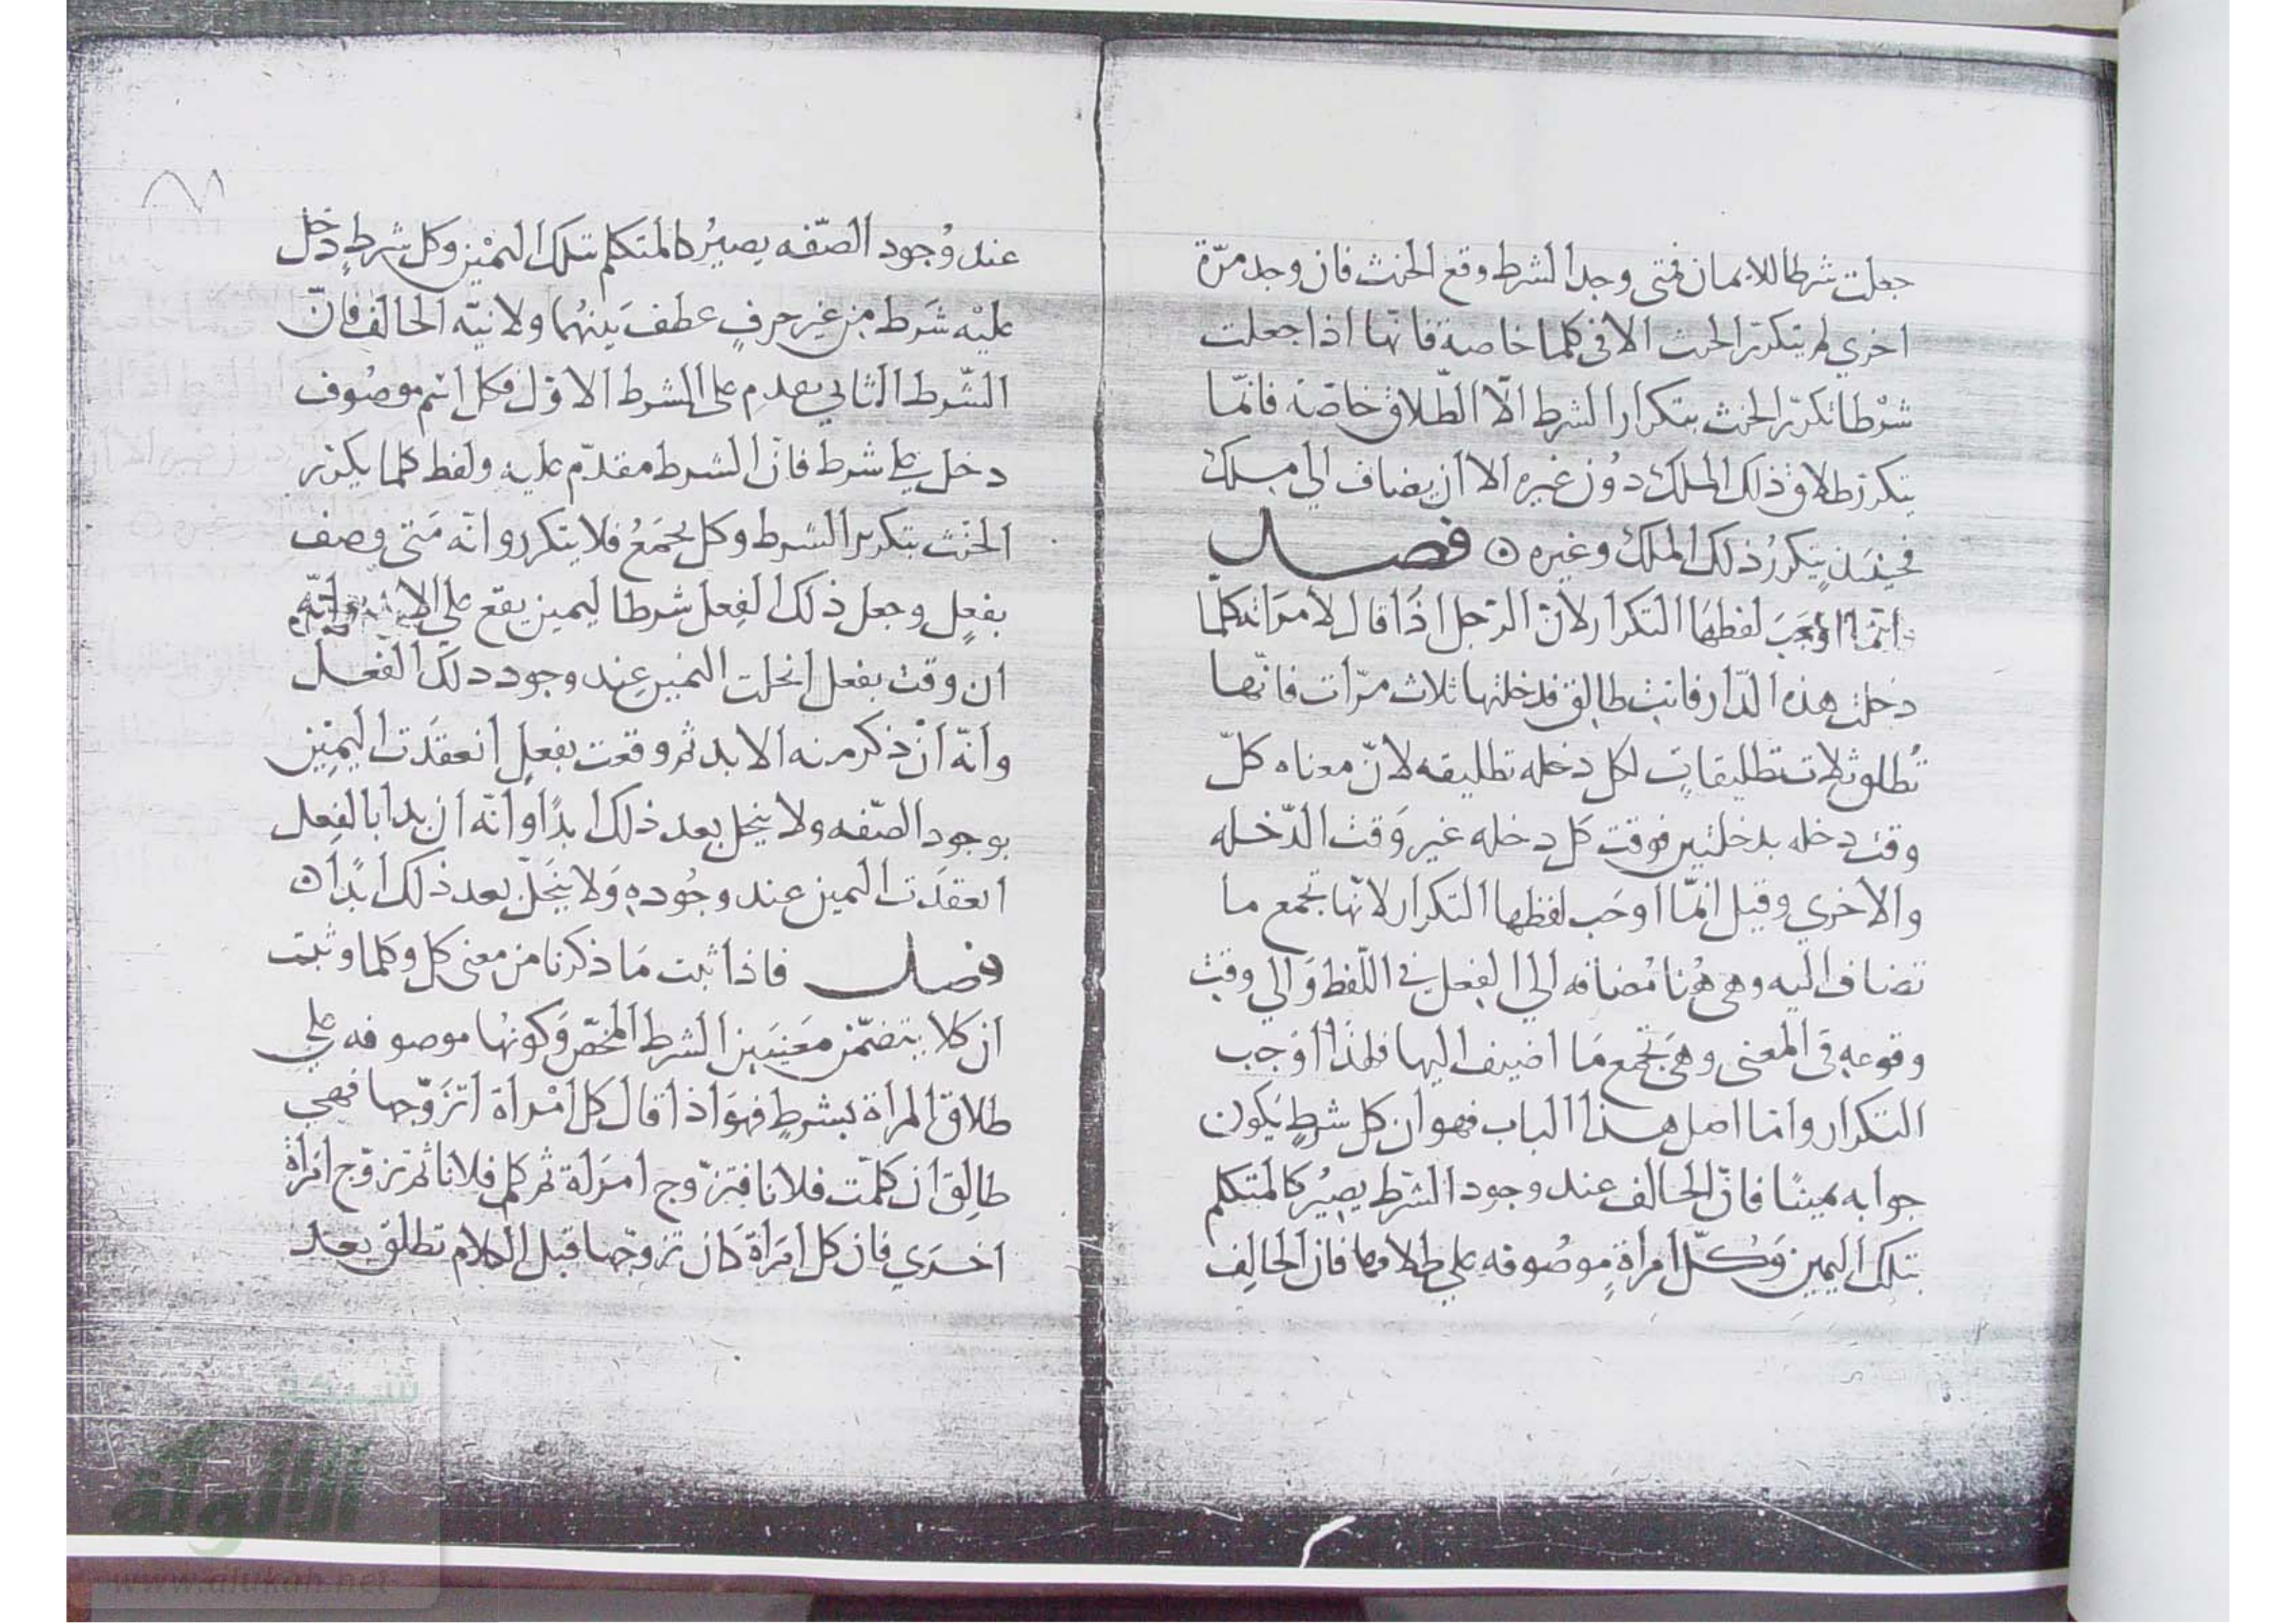 جعلت شرطا للايمان فمتى وجد الشرط وقع الحنث فان وجد مرّة
اخري لم يتكرّر الحنث الا في كلما خاصة فانّها اذا جعلت
شرْطا تكرّر الحنث بتكرار الشرط الّا الطّلاق خاصّة فانمّا
يتكرر طلاق ذلك الملك دُون غيره الا ان يضاف الي ملك
فحينئذٍ يتكررُ ذلك الملك وغيره ۞ فصل
وانّما اوْجَبَ لفظهَا التكرار لانّ الرّجل اذَا قال لامرَاته كلّما
دخلت هذه الدّار فانت طالِق فدخلتها ثلاث مرّات فانّها
تُطلق ثلاث تطليقاتٍ لكل دخله تطليقه لانّ معناه كلّ
وقت دخله بدخلتين فوقت كل دخله غير وَقت الدّخله
والاخري وقيل انّما اوجَب لفظها التكرار لانّها تجمع ما
تضاف اليه وهي هُنا مُضافه الي الفِعل في اللّفظ وَالي وقت
وقوعه في المعنى وهي تجمع مَا اضيف اليها فلهذا اوْجب
التكرار وامّا اصل هذا الباب فهو ان كل شرطٍ يَكون
جوابه يمينًا فانّ الحالف عند وجود الشرط يصِيرُ كالمتكلم
بتلك اليمين وَكُلّ امرأةٍ موصُوفه علي طلاقها فان الحالِف
عند وُجود الصّفه يصيرُ كالمتكلم بتلك اليمْين وكل شرطٍ دخل
عليْه شَرط مِن غير حرفٍ عطف بَينهُما ولا نيّه الحالفِ فانّ
الشّرط الثاني يقدم على الشرط الاوّل وكل اسْم موصُوف
دخل علي شرط فانّ الشرط مقدّم عليه ولفظ كلما يكرّر
الحنْث بتكرير الشرط وكل يجمَعُ فلا يتكرر وانّه مَتى وصف
بفعلٍ وجعل ذلك الفِعل شرطا ليمين يقع علي وانّه
ان وقت بفعل انحلت اليَمين عِند وجود ذلك الفعل
وانّه انْ ذكر منه الابد ثم وقعت بفعلٍ انعقدَت اليمِين
بوجود الصّفه ولا ينحل بعد ذلك ابدًا وانّه ان بدا بالفِعل
انعقدَت اليمين عند وجُوده وَلا ينحَلّ بعد ذلك ابدًا ۞
فصل فاذا ثبت مَا ذكرنا من معنى كل وكلما وثبت
ان كلا يتضمّن مَعنيَين الشرط المحض وَكونهُا موصوفه علي
طلاق المراة بشرطٍ فهوَ اذا قال كل امْراة اتزَوّجها فهي
طالِق ان كلمّت فلانا فتزوّج امرَاة ثم كلم فلانا ثم تزوّج امَراةً
اخرَي فان كل امرَاة كان تزوجّها قبل الكلام تطلق بعد
شبكة
الألوكة
www.alukah.net